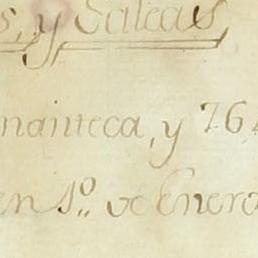 s, y Salcas,
manteca, y 764
en 1º.. de Enero